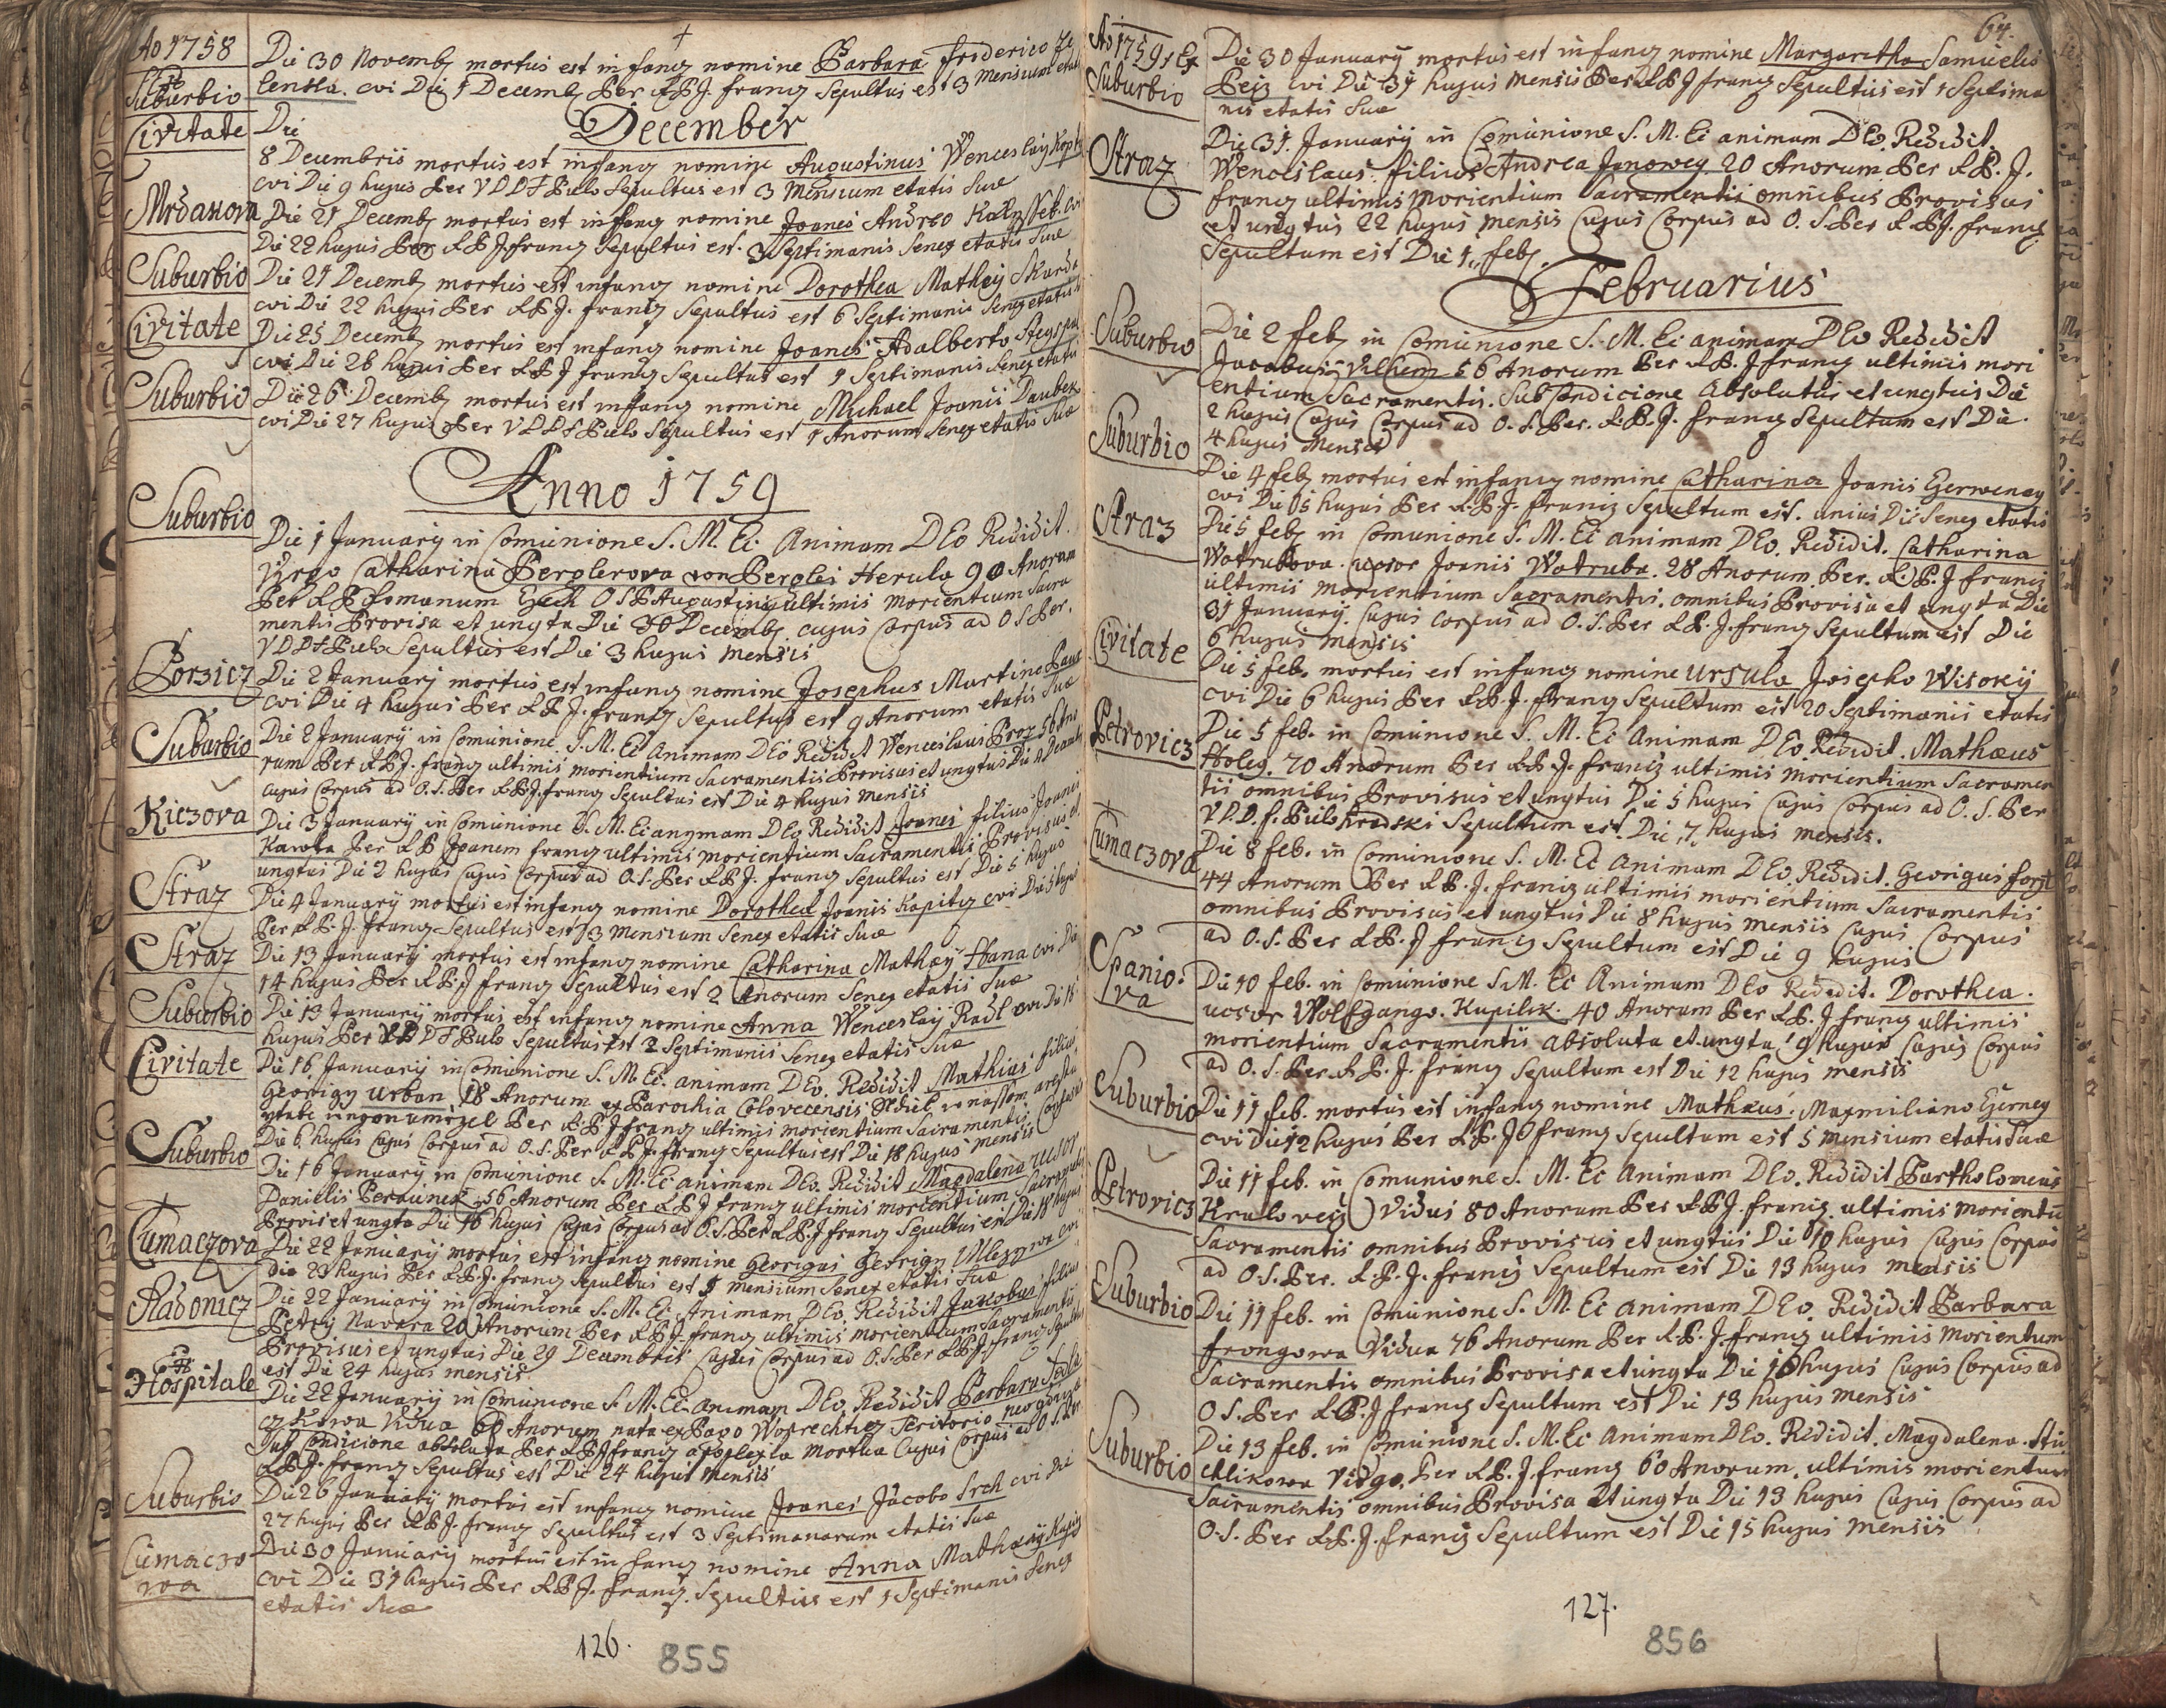 Ao 1758
Ex
Suburbio
Die 30 Novemb mortus est infang nomine Barbara friderico
cui Die 1 Decemb Per A P J. franz Sepultus est 3 Mensium
December
Civitate
Die
8 Decembris mortus est infang nomine Augustinus Wenceslaij
cui Die 9 hujus Per V D D F Pulo Sepultus est 3 Mensium etatis Suæ
Mrdakova
Die 21 Decemb mortus est infang nomine Joanes Andreo
Die 22 hujus Per A P J franz Sepultus est. 3 Septimanis Seneg etatis Suæ
Suburbio
Die 21 Decemb mortus est infang nomine Dorothea Mathej
cui Die 22 hujus Per A P J. franz Sepultus est 6 Septimanis Seneg etatis
Civitate
Die 25 Decemb mortus est infang nomine Joanes Adalberto
cui Die 26 hujus Per A P J franz Sepultus est 1 Septimanis Seneg etatis
Suburbio
Die 26 Decemb mortus est infang nomine Michael Joanis
cui Die 27 hujus Per V D D F Pulo Sepultus est 1 Anorum Seneg etatis Suæ
Anno 1759
Suburbio
Die 1 January in Comunione S. M. Ec. Animam DEo Redidit.
Virgo Catharina Perglerova von Perglas Herula 90 Anorum
Per A P Romanum O S P Augustini ultimis morientium Sacra
mentis Provisa et ungta Die 30 Decemb. cujus Corpus ad O S Per.
V D D F Pulo Sepultus est Die 3 hujus mensis
Porzicz
Die 2 January mortus est infang nomine Josephus Martino
cui Die 4 hujus Per A P J. franz Sepultus est 9 Anorum etatis Suæ
Suburbio
Die 2 January in Comunione S. M. Ec Animam DEo Redidit Wenceslaus Proz 56 Ano
rum Per A P J. franz ultimis morientium Sacramentis Provisus et ungtus Die
cujus Corpus ad O. S. Per A P J. franz Sepultus est Die 4 hujus mensis
Kiczova
Die 3 January in Comunione S. M. Ec anymam DEo Redidit Joanes filius Joanis
Per A P Joanem franz ultimis morientium Sacramentis Provisus et
ungtus Die 2 hujus Cujus Corpus ad O. S. Per A P J. franz Sepultus est Die 5 hujus
Straz
Die 4 January mortus est infang nomine Dorothea Joanis Kapitz cui Die 5 hujus
Per A P. J. franz Sepultus est 3 mensium Seneg etatis Suæ
Straz
Die 13 January mortus est infang nomine Catharina Mathej Hana cui Die
14 hujus Per A P. J franz Sepultus est 2 Anorum Seneg etatis Suæ
Suburbio
Die 13 January mortus est infang nomine Anna Wenceslaij cui Die 15
hujus Per V D D F Pulo Sepultus est 2 Septimanis Seneg etatis Suæ
Civitate
Die 16 January in Comunione S. M. Ec. animam DEo. Redidit Mathias filius
Georigy Urban 18 Anorum ex Parochia Colovecensis
Per A P J franz ultimis morientium Sacramentis
Die 6 hujus Cujus Corpus ad O. S. Per A P J. franz Sepultus est Die 18 hujus mensis
Suburbio
Die 16 January in Comunione S. M. Ec animam DEo. Redidit Magdalena uxor
Danielis 56 Anorum Per A P J franz ultimis morientium Sacramentis
Provis et ungta Die 16 hujus Cujus Corpus ad O. S. Per A P J franz Sepultus est Die 18 hujus
Cumaczova
Die 22 January mortus est infang nomine Georigus Georigy cui
Die 23 hujus Per A P J. franz Sepultus est 5 mensium Seneg etatis Suæ
Radonicz
Die 22 January in Comunione S. M. Ec. Animam DEo. Redidit Jakobus filius
Petry Navara 20 Anorum Per A P J. franz ultimis morientium Sacramentis
Provisus et ungtus Die 29 Decembris Cujus Corpus ad O. S. Per A P J franz Sepultus
est Die 24 hujus mensis
Ex
Hospitale
Die 22 January in Comunione S. M. Ec. animam DEo Redidit Barbara
Vidua 60 Anorum nata ex Pago
Sub Condicione absoluta Per A P J franz apoplexia mortua Cujus Corpus ad O. S. Per
A P J. franz Sepultus est Die 24 hujus mensis
Suburbio
Die 26 January mortus est infang nomine Joanes Jacobo Srch cui Die
27 hujus Per A P J. franz Sepultus est 3 Septimanarum etatis Suæ
Cumaczo
wa
Die 30 January mortus est infang nomine Anna Mathæij
cui Die 31 hujus Per A P J. franz. Sepultus est 1 Septimanis Seneg
etatis Suæ
126.
855
64.
Ao 1759 Ex
Suburbio
Die 30 January mortus est infang nomine Margaretha Samuelis
cui Die 31 hujus mensis Per A P J franz Sepultus est 1 Septima
nis etatis Suæ
Straz
Die 31. January in Comunione S. M. Ec animam DEo. Redidit.
Wencislaus. filius Andrea Janowey 20 Anorum Per A P. J.
franz ultimis morientium Sacramentis omnibus Provisus
et ungtus 22 hujus mensis Cujus Corpus ad O. S. Per A P J. franz
Sepultum est Die 1. feb.
Februarius
Suburbio
Die 2 feb. in Comunione S. M. Ec animam DEo Redidit
Jacobus Vilhem 56 Anorum Per A P. J franz ultimis mori
entium Sacramentis. Sub Condicione Absolutus et ungtus Die
2 hujus Cujus Corpus ad O. S. Per. A. P. J. franz Sepultum est Die
4 hujus mensis
Suburbio
Die 4 feb mortus est infang nomine Catharina Joanis
cui Die 5 hujus Per A. P. J. franz Sepultum est. unius Die Seneg etatis
Straz
Die 5 feb in Comunione S. M. Ec animam DEo. Redidit. Catharina
Watrubova. uxor Joanis Watruba. 28 Anorum. Per. A. P. J franz
ultimis morientium Sacramentis. omnibus Provisa et ungta Die
31 January. Cujus Corpus ad O. S. Per A P. J. franz Sepultum est Die
6 hujus mensis
Civitate
Die 5 feb. mortus est infang nomine Ursula Josepho Wisokij
cui Die 6 hujus Per A P. J. franz Sepultum est 20 Septimanis etatis
Petrovicz
Die 5 feb. in Comunione S. M. Ec Animam DEo. Redidit. Mathæus
Holeg. 70 Anorum Per A P. J. franz ultimis morientium Sacramen
tis omnibus Provisus et ungtus Die 5 hujus Cujus Corpus ad O. S. Per
V. D. D. f. Pulo Sepultum est Die 7 hujus mensis.
Cumaczova
Die 8 feb. in Comunione S. M. Ec animam DEo. Redidit. Georigus forst
44 Anorum Per A P. J. franz ultimis morientium Sacramentis
omnibus Provisus et ungtus Die 8 hujus mensis Cujus Corpus
ad O. S. Per A P. J franz Sepultum est Die 9 hujus
Spanio:
va
Die 10 feb. in Comunione S. M. Ec Animam DEo Redidit. Dorothea.
uxor Wolfgango. Kupilik. 40 Anorum Per A P. J franz ultimis
morientium Sacramentis absoluta et ungta 9 hujus Cujus Corpus
ad O. S. Per A P. J. franz Sepultum est Die 12 hujus mensis
Suburbio
Die 11 feb. mortus est infang nomine Mathæus. Maxmiliano
cui Die 12 hujus Per A. P. J franz Sepultum est 5 mensium etatis Suæ
Petrovicz
Die 11 feb. in Comunione S. M. Ec Animam DEo. Redidit Bartholomeus
Kralovecz Vidus 80 Anorum Per A P J. franz. ultimis morientiu
Sacramentis omnibus Provisus et ungtus Die 10 hujus Cujus Corpus
ad O. S. Per. A. P. J. franz Sepultum est Die 13 hujus mensis
Suburbio
Die 11 feb. in Comunione S. M. Ec animam DEo. Redidit Barbara
frongowa Vidua 76 Anorum Per A. P. J. franz ultimis morientum
Sacramentis omnibus Provisa et ungta Die 10 hujus Cujus Corpus ad
O S. Per A. P. J franz Sepultum est Die 13 hujus mensis
Suburbio
Die 13 feb. in Comunione S. M. Ec Animam DEo. Redidit. Magdalena. Stu
chlikowa Virgo. Per A. P. J. franz 60 Anorum. ultimis morientum
Sacramentis omnibus Provisa et ungta Die 13 hujus Cujus Corpus ad
O. S. Per A. P. J. franz Sepultum est Die 15 hujus mensis
127.
856